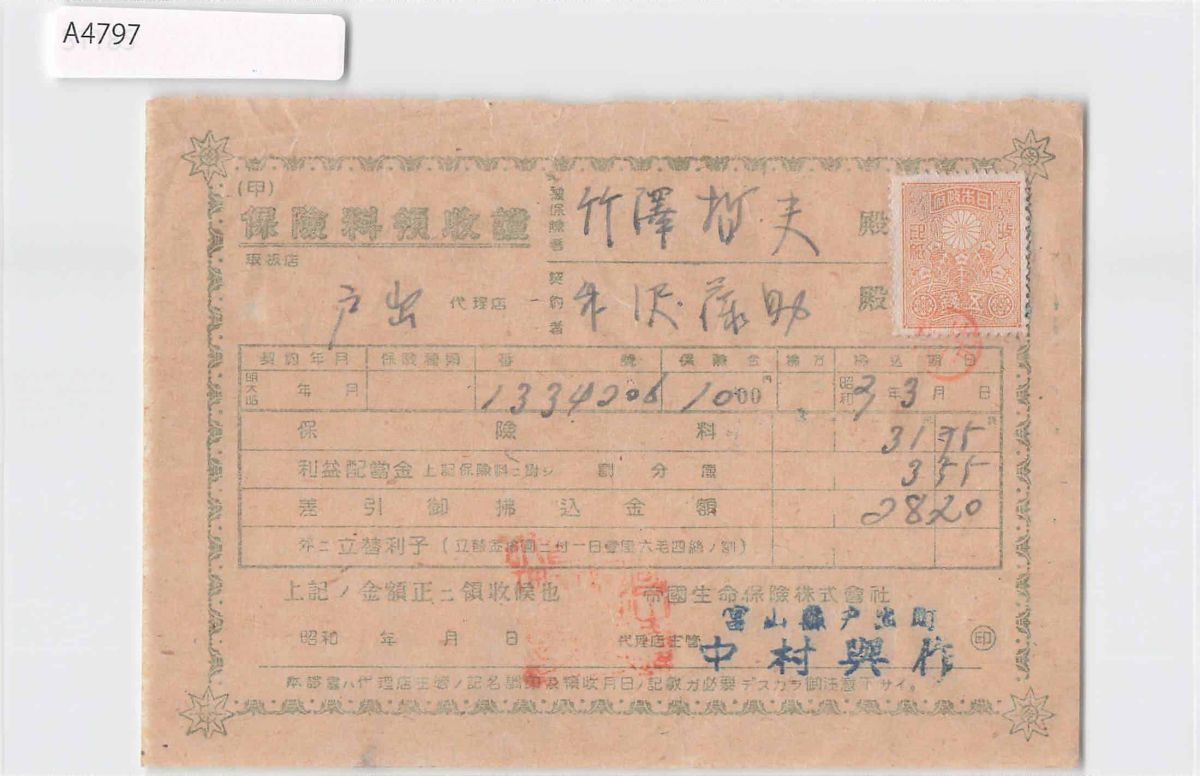 A4797
(甲)
保險料領收證
取扱店
戸出 代理店
被保險者 竹澤哲夫 殿
契約者 竹沢藤助 殿
日本政府
収入
印紙
五銭
契約年月 保險種類 番號 保險金 拂方 拂込期日
年 月 1334206 1000 円 昭和 年 3 月 日
保險料 31 75
利益配當金 上記保險料ニ對シ 割 分 厘 3 55
差引御拂込金額 28 20
外ニ立替利子(立替金拾圓ニ付一日壹厘六毛四絲ノ割)
上記ノ金額正ニ領收候也 帝國生命保險株式會社
昭和 年 月 日 代理店主管 富山縣戸出町
中村興作 印
本證書ハ代理店主管ノ記名調印及領收月日ノ記載ガ必要デスカラ御注意下サイ。